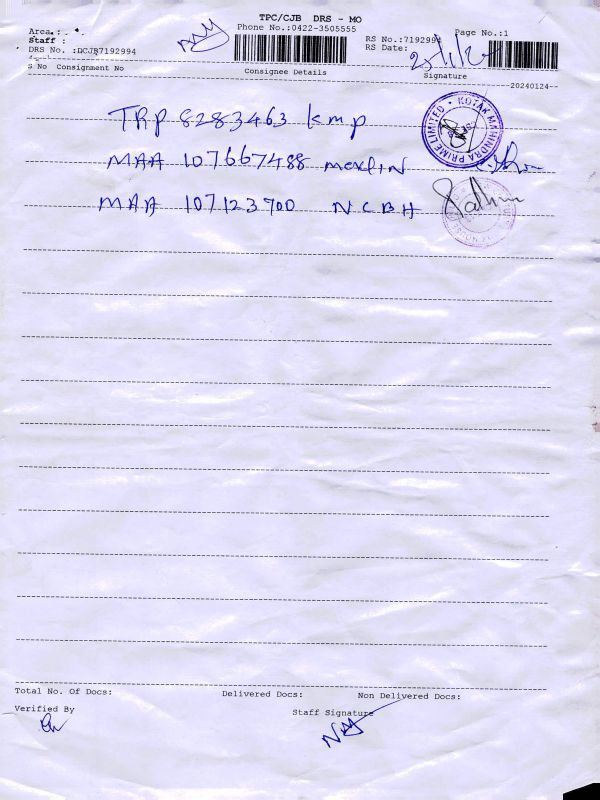 TPC/CJB DRS - MO
Phone No.:0422-3505555
Area :
Staff :
DRS No. :DCJB7192994
RS No.:7192994
RS Date:
Page No.:1
S No Consignment No Consignee Details Signature
20240124
TRP 8283463 kmp
MAA 107667488 merlin
MAA 107123900 NCBH
KOTAK MAHINDRA PRIME LIMITED
Total No. Of Docs: Delivered Docs: Non Delivered Docs:
Verified By Staff Signature